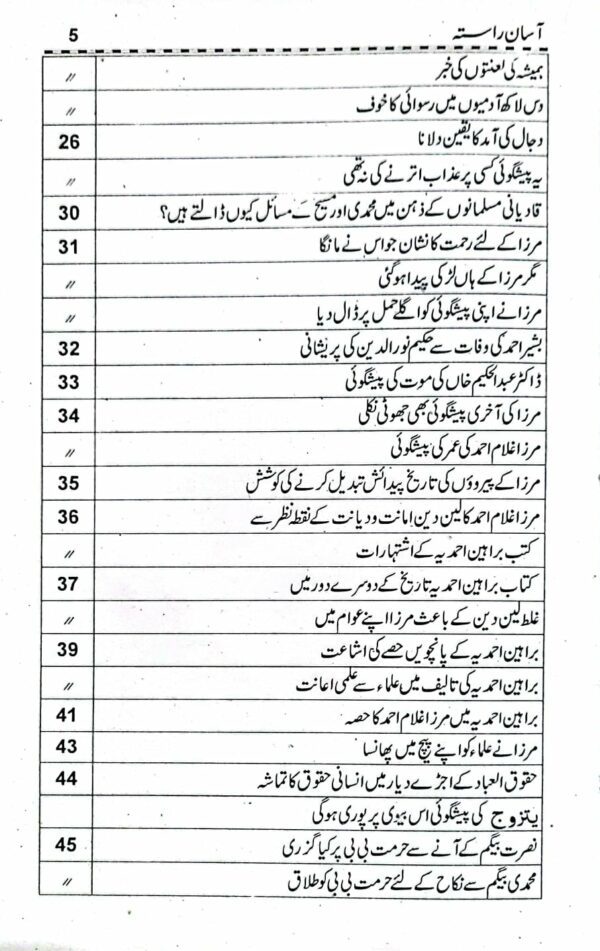 آسان راستہ 5
ہمیشہ کی لعنتوں کی خبر //
دس لاکھ آدمیوں میں رسوائی کا خوف //
دجال کی آمد کا یقین دلانا 26
یہ پیشگوئی کسی پر عذاب اترنے کی نہ تھی //
قادیانی مسلمانوں کے ذہن میں محمدی اور مسیح کے مسائل کیوں ڈالتے ہیں؟ 30
مرزا کے لئے رحمت کا نشان جو اس نے مانگا 31
مگر مرزا کے ہاں لڑکی پیدا ہوگئی //
مرزا نے اپنی پیشگوئی کو اگلے حمل پر ڈال دیا //
بشیر احمد کی وفات سے حکیم نور الدین کی پریشانی 32
ڈاکٹر عبدالحکیم خاں کی موت کی پیشگوئی 33
مرزا کی آخری پیشگوئی بھی جھوٹی نکلی 34
مرزا غلام احمد کی عمر کی پیشگوئی //
مرزا کے پیروؤں کی تاریخ پیدائش تبدیل کرنے کی کوشش 35
مرزا غلام احمد کا لین دین امانت و دیانت کے نقطہ نظر سے 36
کتب براہین احمدیہ کے اشتہارات //
کتاب براہین احمدیہ تاریخ کے دوسرے دور میں 37
غلط لین دین کے باعث مرزا اپنے عوام میں //
براہین احمدیہ کے پانچویں حصے کی اشاعت 39
براہین احمدیہ کی تالیف میں علماء سے علمی اعانت //
براہین احمدیہ میں مرزا غلام احمد کا حصہ 41
مرزا نے علماء کو اپنے پیچ میں پھانسا 43
حقوق العباد کے اجڑے دیار میں انسانی حقوق کا تماشہ 44
یتزوج کی پیشگوئی اس بیوی پر پوری ہوگی
نصرت بیگم کے آنے سے حرمت بی بی پر کیا گزری 45
محمدی بیگم سے نکاح کے لئے حرمت بی بی کو طلاق //